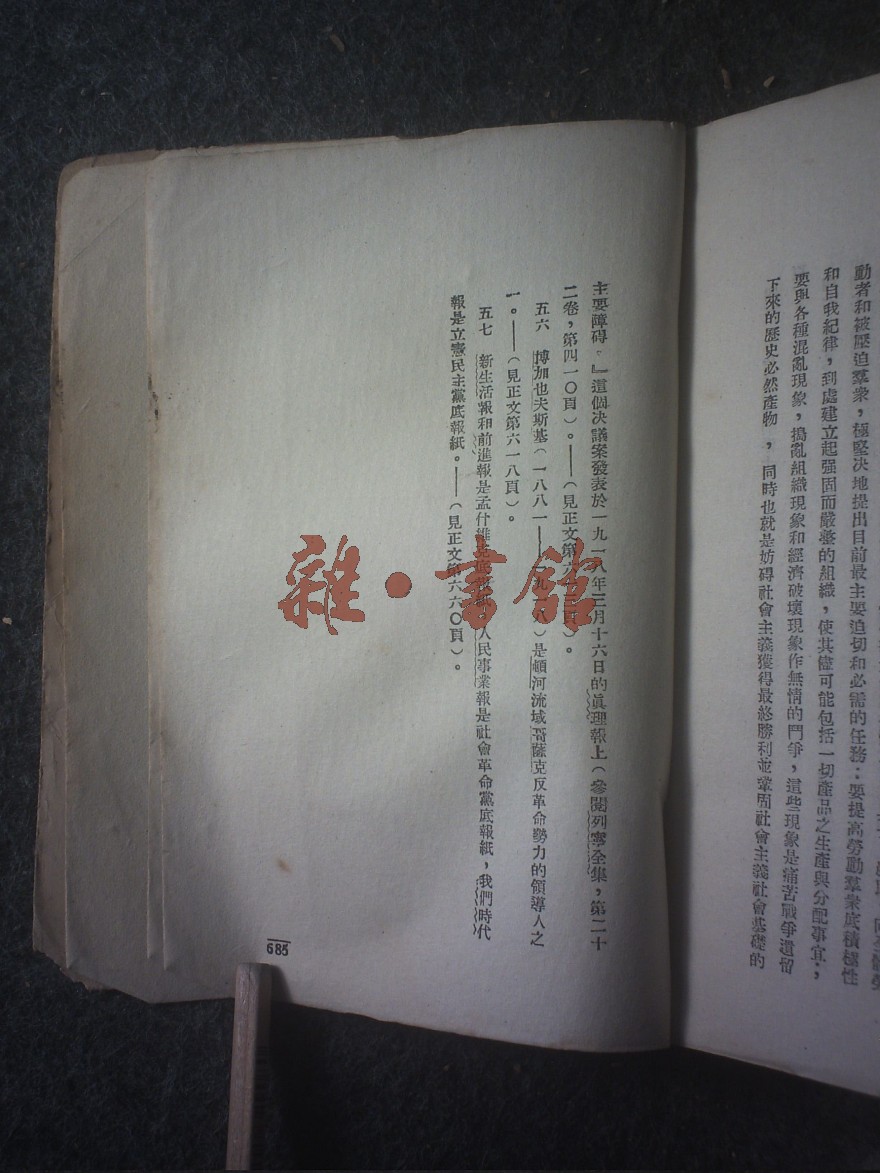 動者和被壓迫羣衆，極堅决地提出目前最主要迫切和必需的任務：要提高勞動羣衆底積極性
和自我紀律，到處建立起强固而嚴整的組織，使其儘可能包括一切產品之生產與分配事宜；
要與各種混亂現象，搗亂組織現象和經濟破壞現象作無情的鬥爭，這些現象是痛苦戰爭遺留
下來的歷史必然產物，同時也就是妨碍社會主義獲得最終勝利並鞏固社會主義社會基礎的
主要障碍。』這個决議案發表於一九一八年三月十六日的眞理報上（參閱列寧全集，第二十
二卷，第四一〇頁）。——（見正文第六 頁）。
五六 博加也夫斯基（一八八一——一九一八）是頓河流域哥薩克反革命勢力的領導人之
一。——（見正文第六一八頁）。
五七 新生活報和前進報是孟什維克底報紙，人民事業報是社會革命黨底報紙，我們時代
報是立憲民主黨底報紙。——（見正文第六六〇頁）。
685
雜·書舘